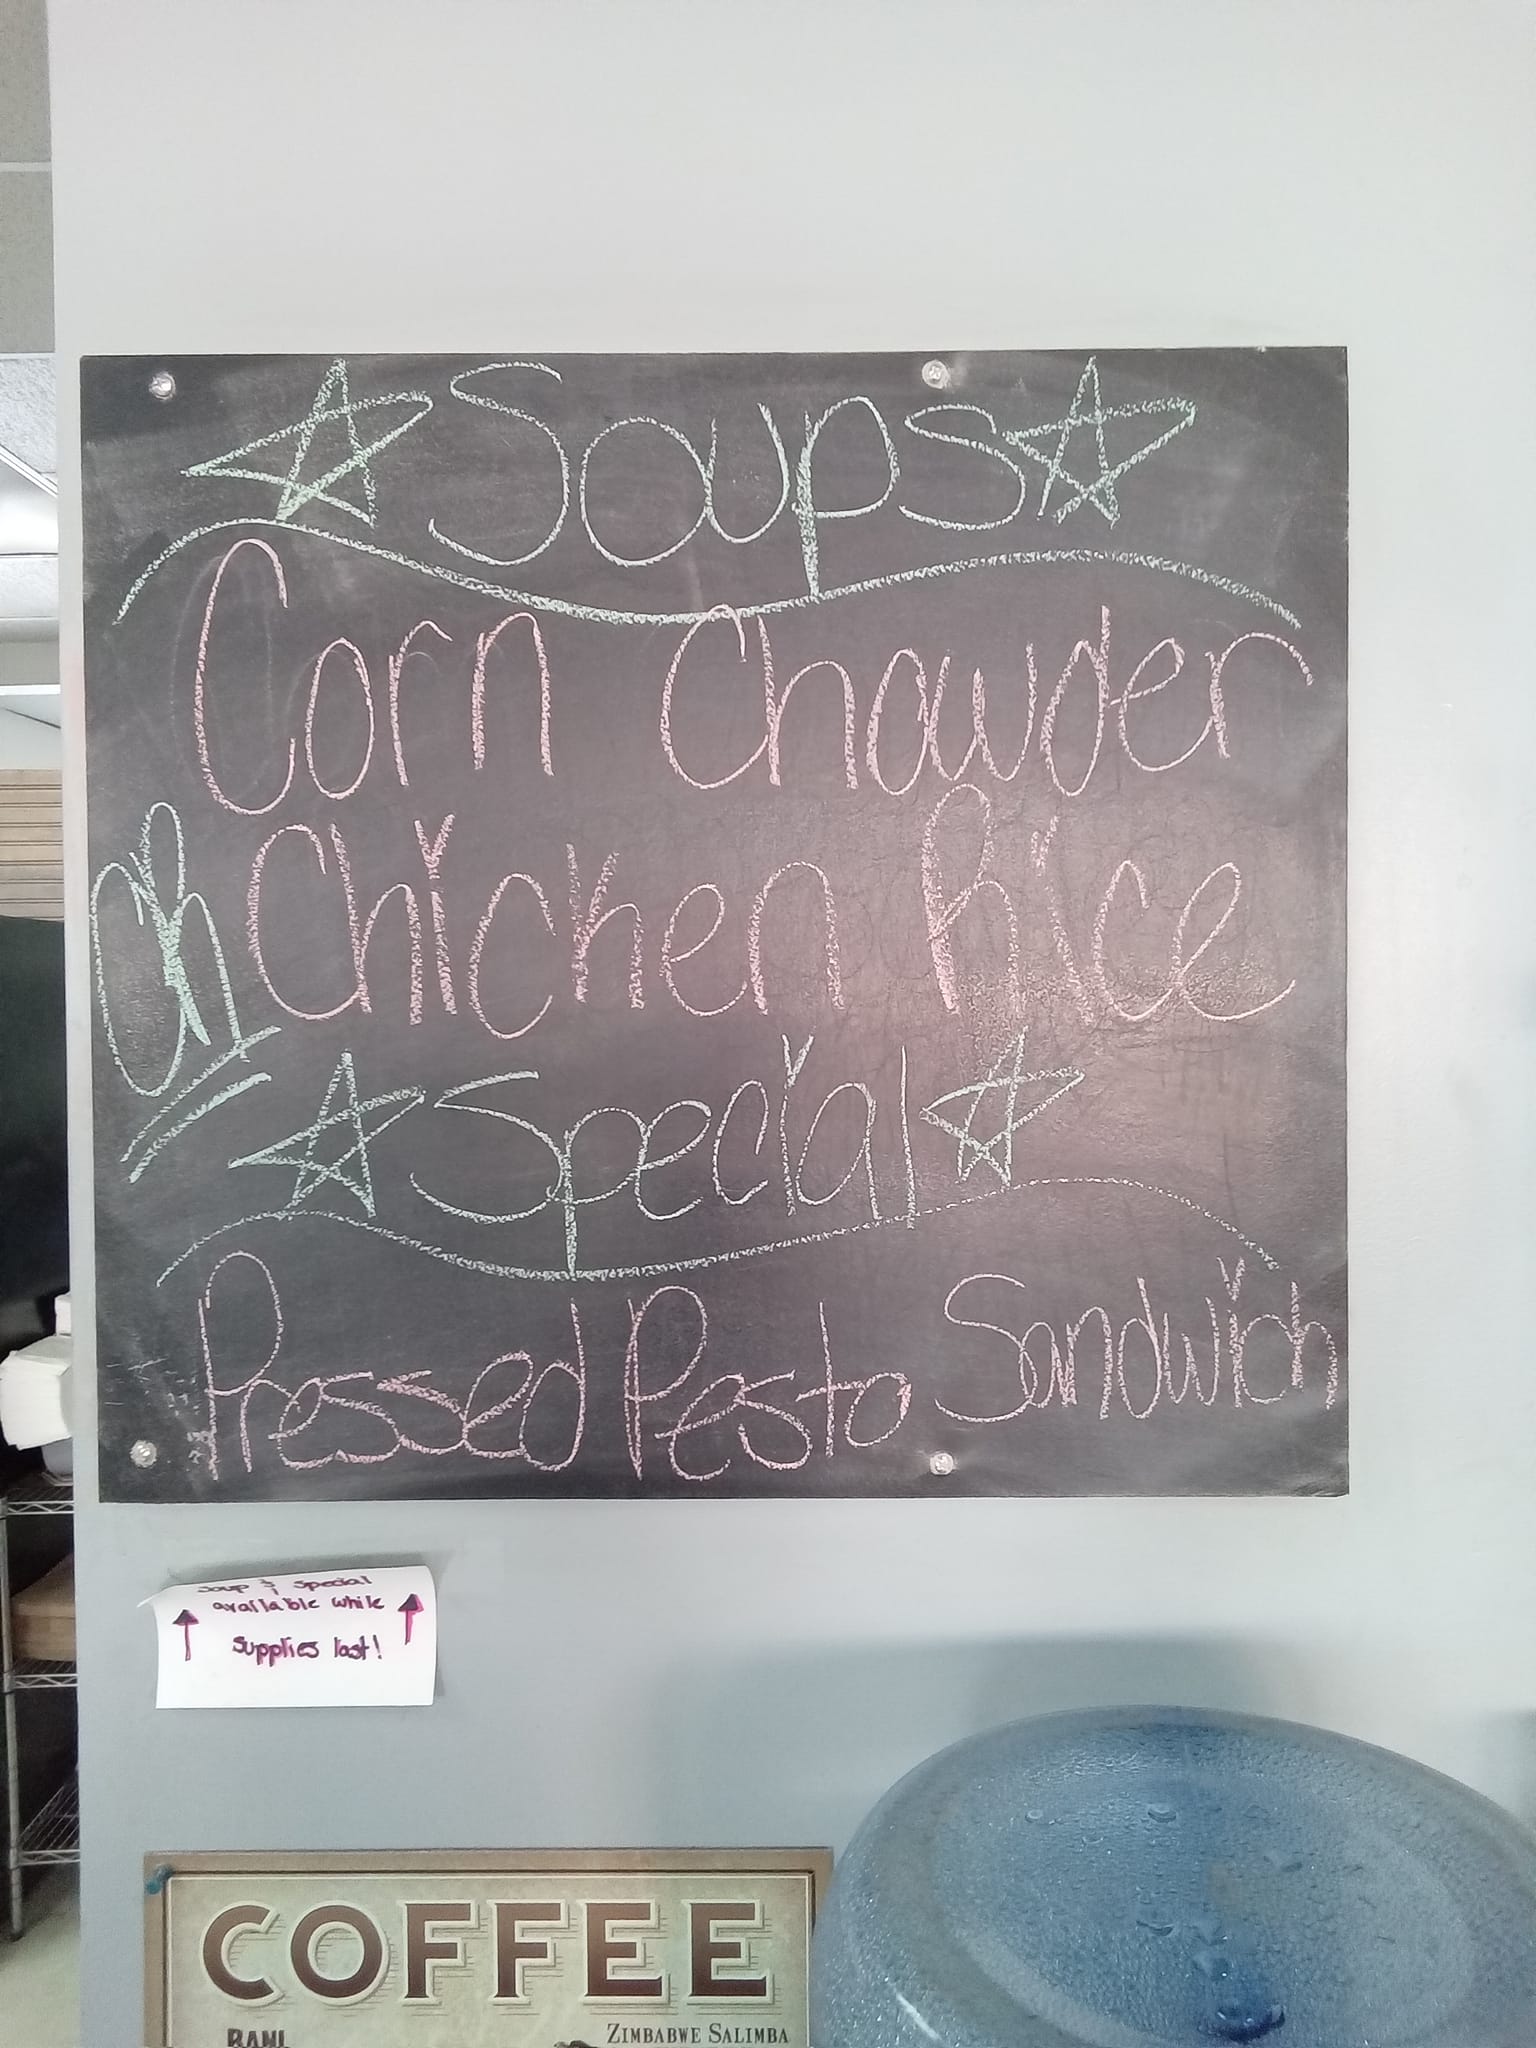 Soups
Corn Chowder
GF Chicken Rice
Special
Pressed Pesto Sandwich
Soup & Special
available while
supplies last!
COFFEE
BALI
ZIMBABWE SALIMBA